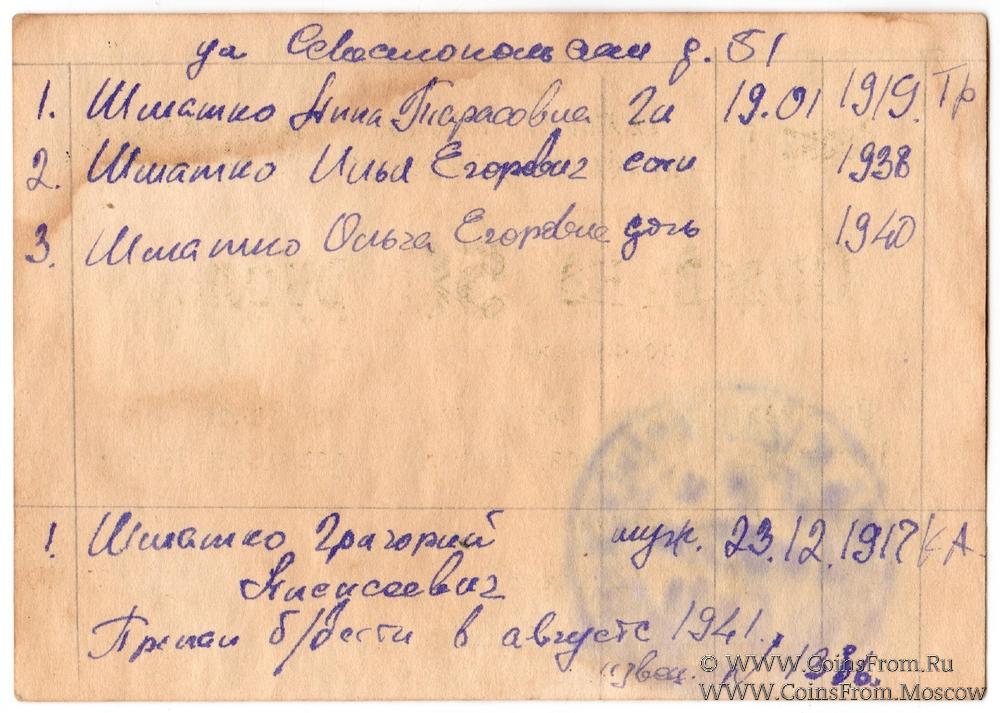 ул Севастопольская д. 51
1. Шматко Нина Тарасовна Гл 19.01 1919. Тр
2. Шматко Илья Егорович сын 1938
3. Шматко Ольга Егоровна дочь 1940
1. Шматко Григорий муж. 23.12.1917 КА
Пропал б/вести в августе 1941.
извещ.
© WWW.CoinsFrom.Ru
WWW.CoinsFrom.Moscow